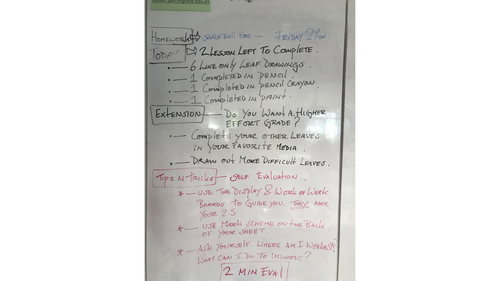 HOMEWORK FRIDAY 29TH
TODAY 2 LESSON LEFT TO COMPLETE.
- 6 LINE ONLY LEAF DRAWINGS.
- 1 COMPLETED IN PENCIL
- 1 COMPLETED IN PENCIL CRAYON.
- 1 COMPLETED IN PAINT.
EXTENSION - DO YOU WANT A HIGHER
EFFORT GRADE?
- COMPLETE YOUR OTHER LEAVES
IN YOUR FAVORITE MEDIA.
- DRAW OUT MORE DIFFICULT LEAVES.
TIPS N TRICKS - SELF EVALUATION.
* - USE THE DISPLAY & WORK OF WEEK
BOARDS TO GUIDE YOU. THEY ARE
YOUR
* - USE MARK SCHEME ON THE BACK
OF YOUR SHEET.
* - ASK YOURSELF WHERE AM I WEAKEST
WHAT CAN I DO TO IMPROVE?
2 MIN EVAL